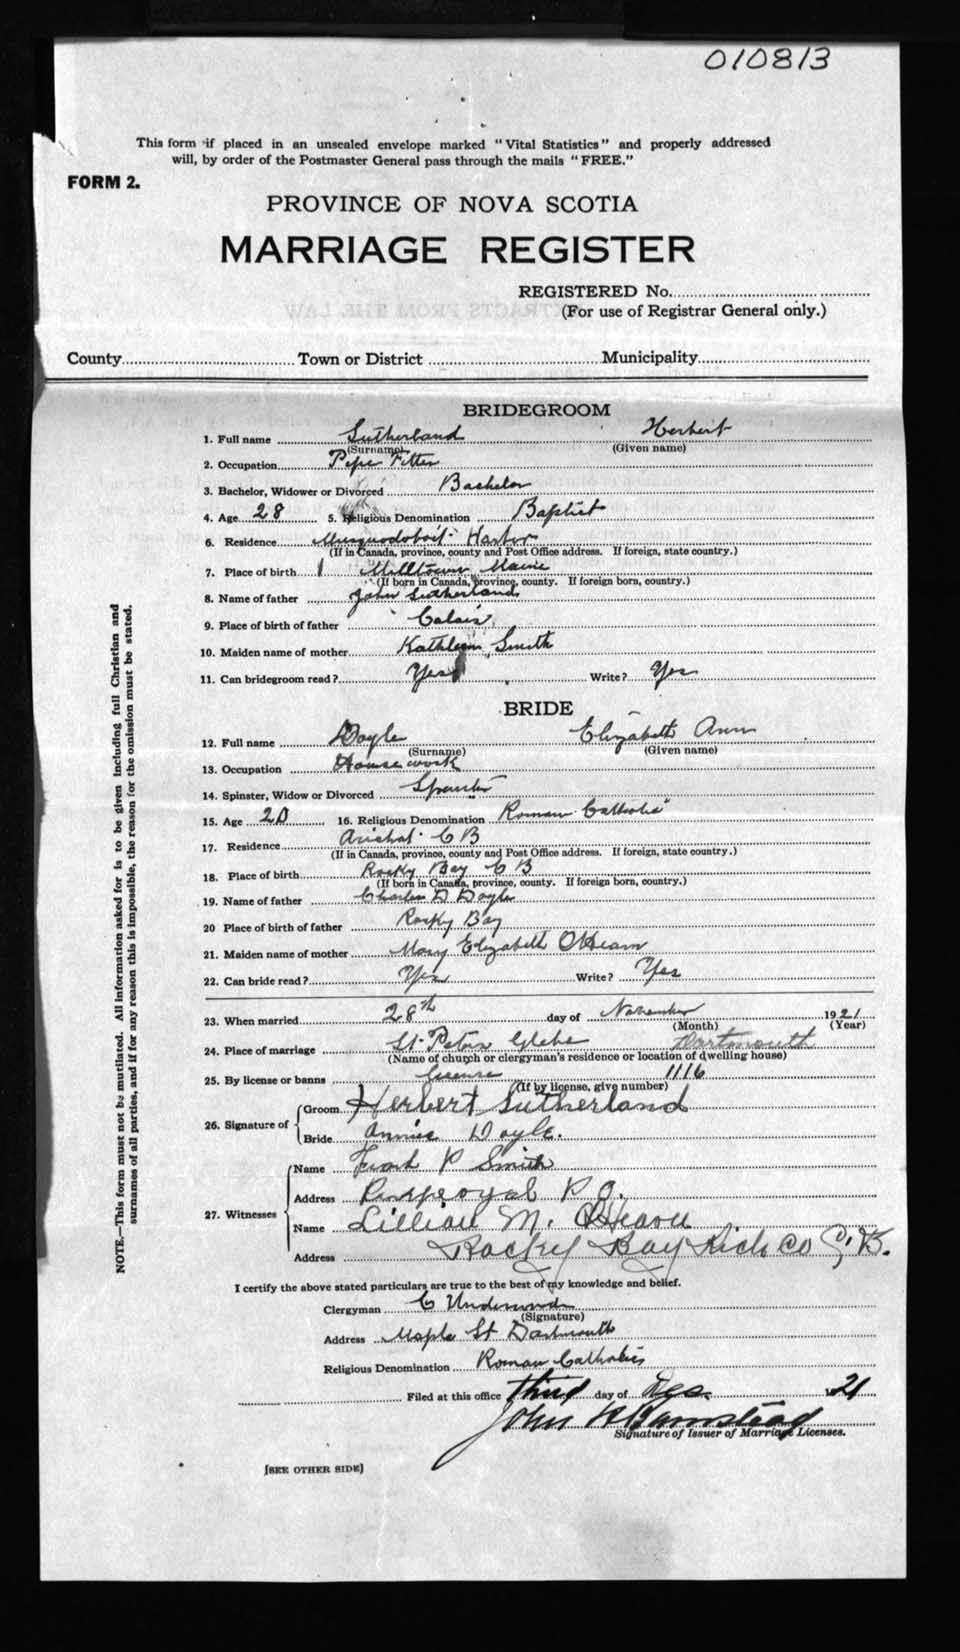 010813
This form if placed in an unsealed envelope marked "Vital Statistics" and properly addressed
will, by order of the Postmaster General pass through the mails "FREE."
FORM 2.
PROVINCE OF NOVA SCOTIA
MARRIAGE REGISTER
REGISTERED No.
(For use of Registrar General only.)
County Town or District Municipality
BRIDEGROOM
1. Full name Sutherland Herbert
(Surname) (Given name)
2. Occupation Pipe Fitter
3. Bachelor, Widower or Divorced Bachelor
4. Age 28 5. Religious Denomination Baptist
6. Residence Musquodoboit Harbor
(If in Canada, province, county and Post Office address. If foreign, state country.)
7. Place of birth Milltown Maine
(If born in Canada, province, county. If foreign born, country.)
8. Name of father John Sutherland
9. Place of birth of father Calais
10. Maiden name of mother Kathleen Smith
11. Can bridegroom read? Yes Write? Yes
BRIDE
12. Full name Doyle Elizabeth Ann
(Surname) (Given name)
13. Occupation Housework
14. Spinster, Widow or Divorced Spinster
15. Age 20 16. Religious Denomination Roman Catholic
17. Residence Arichat C B
(If in Canada, province, county and Post Office address. If foreign, state country.)
18. Place of birth Rocky Bay C B
(If born in Canada, province, county. If foreign born, country.)
19. Name of father Charles D Doyle
20 Place of birth of father Rocky Bay
21. Maiden name of mother Mary Elizabeth O'Hearn
22. Can bride read? Yes Write? Yes
23. When married 28th day of November 1921
(Month) (Year)
24. Place of marriage St. Peters Glebe Dartmouth
(Name of church or clergyman's residence or location of dwelling house)
25. By license or banns license 1116
(If by license, give number)
26. Signature of
Groom Herbert Sutherland
Bride Annie Doyle.
27. Witnesses
Name Frank P Smith
Address P.O.
Name Lillian M. O'Hearn
Address Rocky Bay Rich Co C.B.
I certify the above stated particulars are true to the best of my knowledge and belief.
Clergyman C Underwood
(Signature)
Address Maple St Dartmouth
Religious Denomination Roman Catholic
Filed at this office third day of 21
John
Signature of Issuer of Marriage Licenses.
[SEE OTHER SIDE]
NOTE.—This form must not be mutilated. All information asked for is to be given including full Christian and
surnames of all parties, and if for any reason this is impossible, the reason for the omission must be stated.